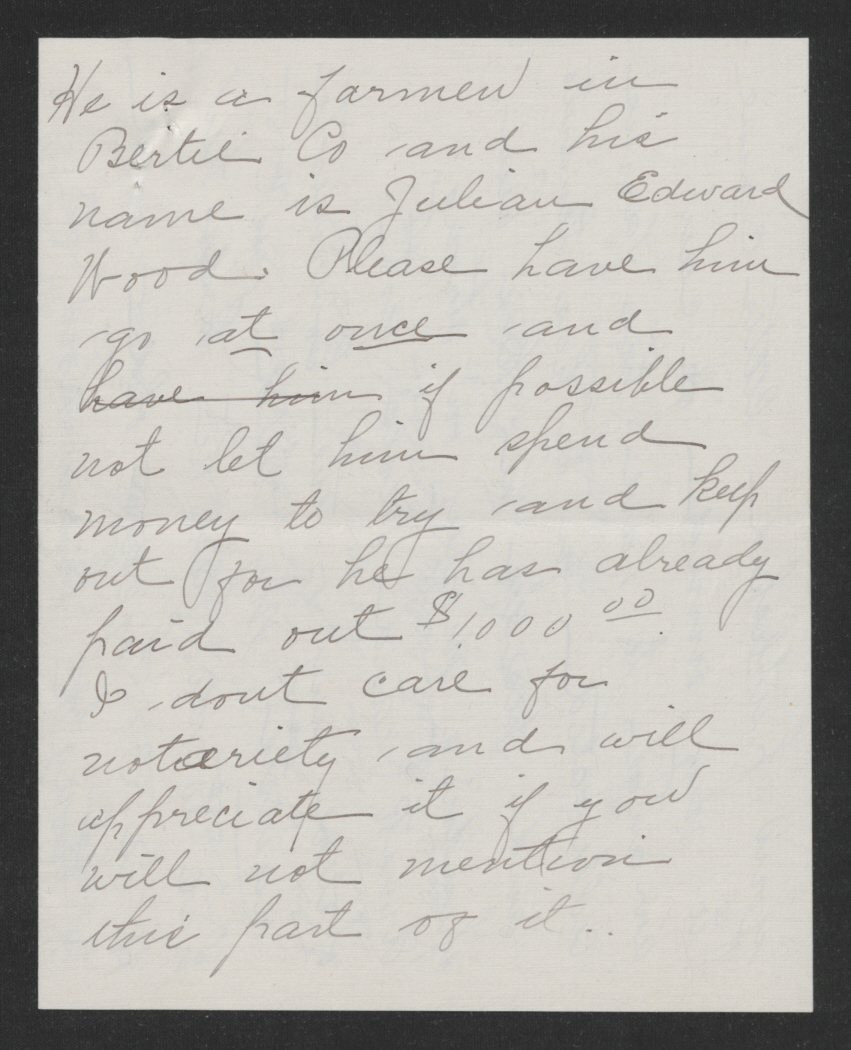 He is a farmer in
Bertie Co and his
name is Julian Edward
Wood. Please have him
go at once and
have him if possible
not let him spend
money to try and keep
out for he has already
paid out $1000 00
I dont care for
notoriety and will
appreciate it if you
will not mention
this part of it..